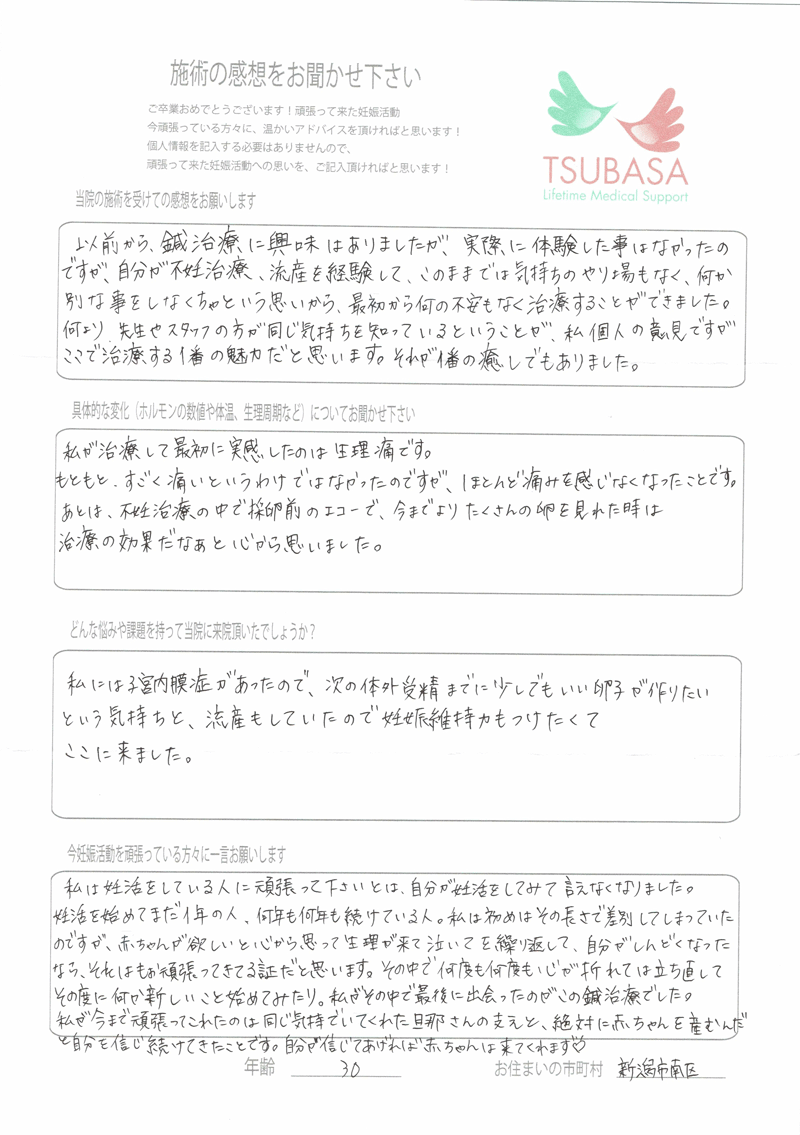 施術の感想をお聞かせ下さい
ご卒業おめでとうございます！頑張って来た妊娠活動
今頑張っている方々に、温かいアドバイスを頂ければと思います！
個人情報を記入する必要はありませんので、
頑張って来た妊娠活動への思いを、ご記入頂ければと思います！
TSUBASA
Lifetime Medical Support
当院の施術を受けての感想をお願いします
以前から、鍼治療に興味はありましたが、実際に体験した事はなかったの
ですが、自分が不妊治療、流産を経験して、このままでは気持ちのやり場もなく、何か
別な事をしなくちゃという思いから、最初から何の不安もなく治療することができました。
何より、先生やスタッフの方が同じ気持ちを知っているということが、私個人の意見ですが
ここで治療する1番の魅力だと思います。それが1番の癒しでもありました。
具体的な変化（ホルモンの数値や体温、生理周期など）についてお聞かせ下さい
私が治療して最初に実感したのは生理痛です。
もともと、すごく痛いというわけではなかったのですが、ほとんど痛みを感じなくなったことです。
あとは、不妊治療の中で採卵前のエコーで、今までよりたくさんの卵を見れた時は
治療の効果だなぁと心から思いました。
どんな悩みや課題を持って当院に来院頂いたでしょうか？
私には子宮内膜症があったので、次の体外受精までに少しでもいい卵子が作りたい
という気持ちと、流産もしていたので妊娠維持力もつけたくて
ここに来ました。
今妊娠活動を頑張っている方々に一言お願いします
私は妊活をしている人に頑張って下さいとは、自分が妊活をしてみて言えなくなりました。
妊活を始めてまだ1年の人、何年も何年も続けている人。私は初めはその長さで差別してしまっていた
のですが、赤ちゃんが欲しいと心から思って生理が来て泣いてを繰り返して、自分がしんどくなった
なら、それはもぉ頑張ってきてる証だと思います。その中で何度も何度も心が折れては立ち直して
その度に何か新しいこと始めてみたり。私がその中で最後に出会ったのがこの鍼治療でした。
私が今まで頑張ってこれたのは同じ気持でいてくれた旦那さんの支えと、絶対に赤ちゃんを産むんだ
と自分を信じ続けてきたことです。自分が信じてあげれば赤ちゃんは来てくれます♡
年齢 30 お住まいの市町村 新潟市南区